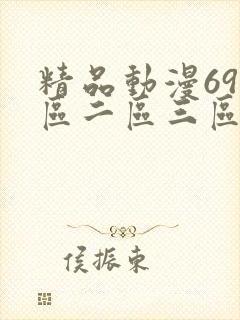 精品動漫69
區二區三區
侯振東